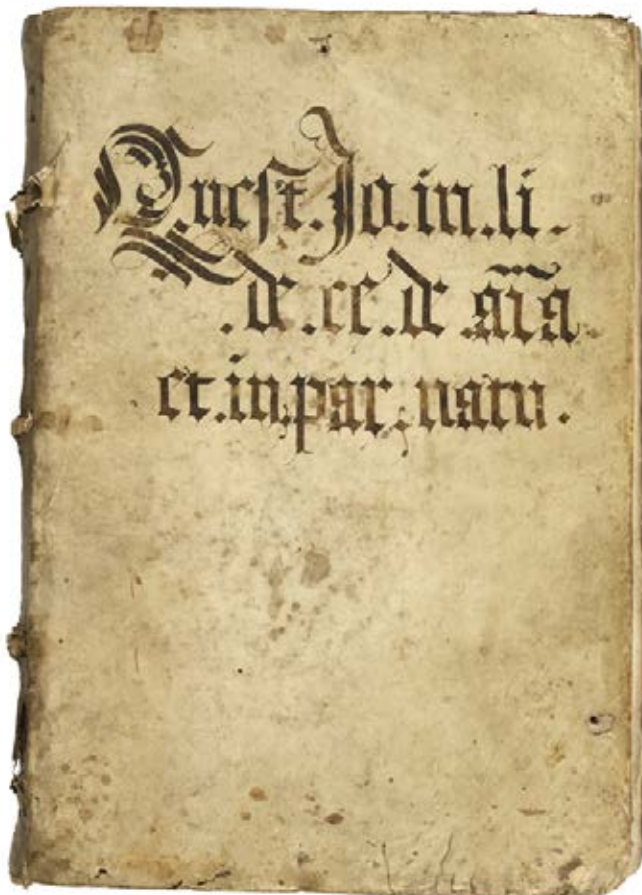 Quest. Jo. in. li.
. de. ce. de aīa.
et. in. par. natu.